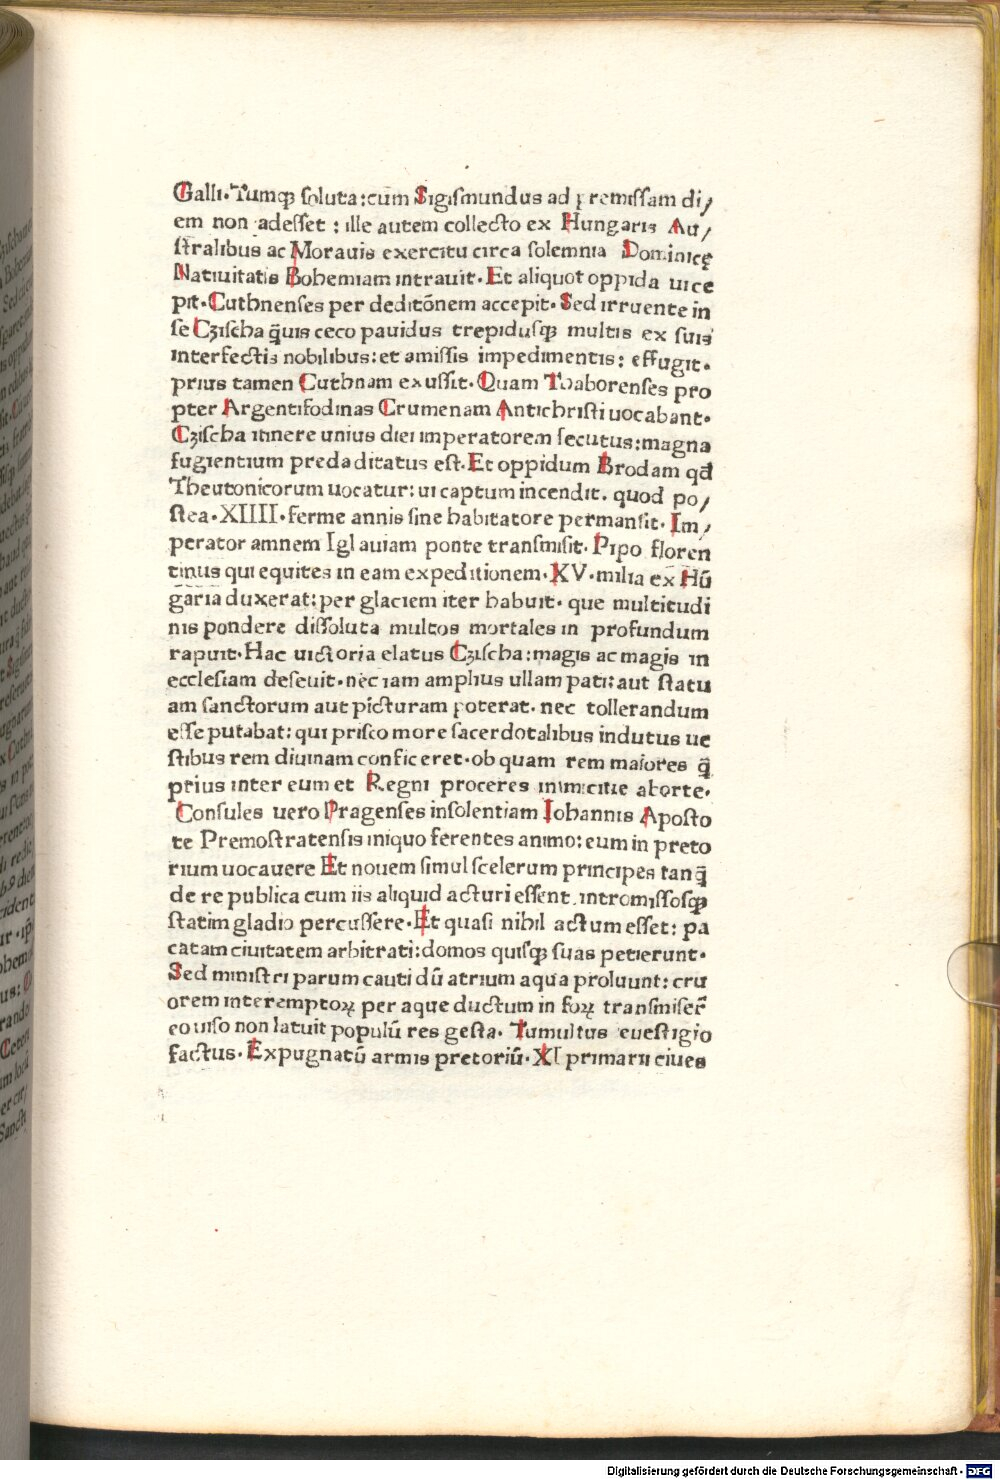 Galli·Tumqꝫ soluta:cum Sigismundus ad premissam di/
em non adesset : ille autem collecto ex Hungaris Au/
stralibus ac Morauis exercitu circa solemnia Dominicę
Natiuitatis Bohemiam intrauit· Et aliquot oppida ui ce
pit·Cuthnenses per deditōnem accepit· Sed irruente in
se Czischa q̄uis ceco pauidus trepidusqꝫ multis ex suis
interfectis nobilibus:et amissis impedimentis: effugit·
prius tamen Cuthnam exussit· Quam Thaborenses pro
pter Argentifodinas Crumenam Antichristi uocabant·
Czischa itinere unius diei imperatorem secutus:magna
fugientium preda ditatus est·Et oppidum Brodam qd
Theutonicorum uocatur: ui captum incendit. quod po/
stea·XIIII·ferme annis sine habitatore permansit· Im/
perator amnem Iglauiam ponte transmisit· Pipo floren
tinus qui equites in eam expeditionem·XV·milia ex Hū
garia duxerat:per glaciem iter habuit· que multitudi
nis pondere dissoluta multos mortales in profundum
rapuit·Hac uictoria elatus Czischa:magis ac magis in
ecclesiam deseuit·nec iam amplius ullam pati:aut statu
am sanctorum aut picturam poterat· nec tollerandum
esse putabat: qui prisco more sacerdotalibus indutus ue
stibus rem diuinam conficeret·ob quam rem maiores q̄
prius inter eum et Regni proceres inimicitie aborte·
Consules uero Pragenses insolentiam Iohannis Aposto
te Premostratensis iniquo ferentes animo:eum in preto
rium uocauere Et nouem simul scelerum principes tanq̄
de re publica cum iis aliquid acturi essent intromissosqꝫ
statim gladio percussere·Et quasi nihil actum esset: pa
catam ciuitatem arbitrati:domos quisqꝫ suas petierunt·
Sed ministri parum cauti dū atrium aqua proluunt: cru
orem interemptoꝝ per aque ductum in foꝝ transmiser̄
eo uiso non latuit populū res gesta· Tumultus euestigio
factus· Expugnatū armis pretoriū·XI primarii ciues
Digitalisierung gefördert durch die Deutsche Forschungsgemeinschaft - DFG